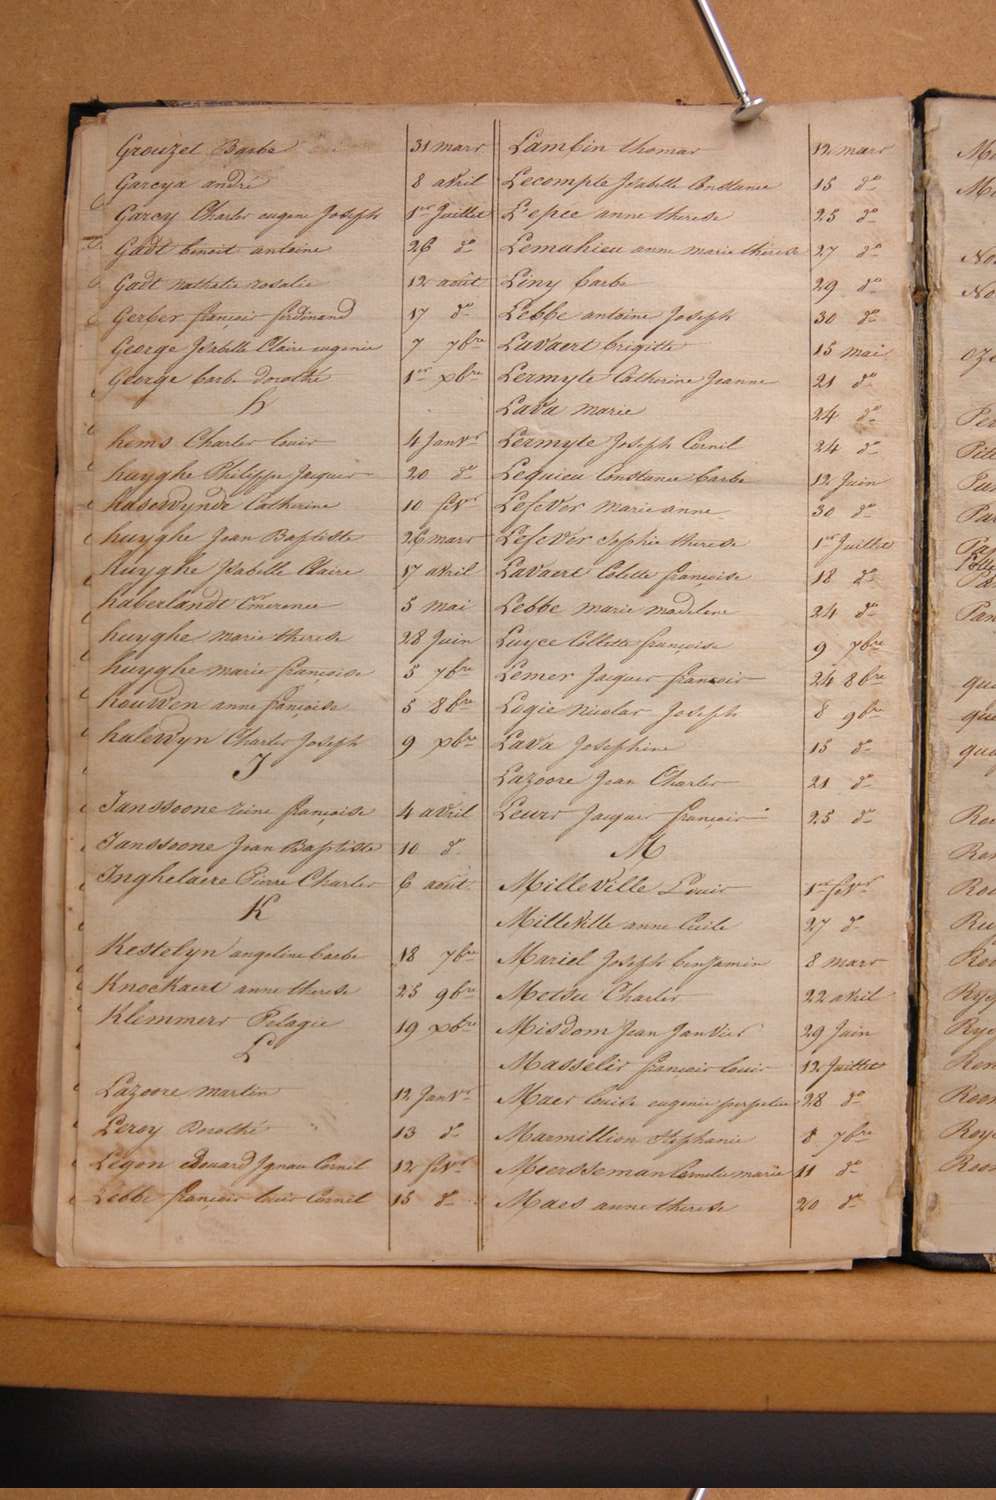 Grouzel Barbe 31 mars
Gareya andré 8 avril
Garcy Charles eugene Joseph 1er Juillet
Gadt benoit antoine 26 do
Gadt nathalie rosalie 12 août
Gerber françois ferdinand 17 do
George Isabelle Claire eugenie 7 7bre
George barbe Dorothé 1er xbre
h
hems Charles louis 4 Janvr
huyghe Philippe Jacques 20 do
hasewynde Catherine 10 fevr
huyghe Jean Baptiste 26 mars
huyghe Isabelle Claire 17 avril
haberlandt Emerence 5 mai
huyghe marie therese 28 Juin
huyghe marie françoise 5 7bre
houwen anne françoise 5 8bre
halewyn Charles Joseph 9 xbre
J
Janssoone reine françoise 4 avril
Janssoone Jean Baptiste 10 do
Inghelaere Pierre Charles 6 août
K
Kestelyn angeline barbe 18 7bre
Knockaert anne therese 25 9bre
Klemmers Pelagie 19 xbre
L
Lazoore martin 12 Janvr
Leroy Dorothé 13 do
Legon edouard Ignace Cornil 12 fevr
Lebbe françois louis Cornil 15 do
Lambin thomas 12 mars
Lecompte Isabelle Constance 15 do
Lepee anne therese 25 do
Lemahieu anne marie thérèse 27 do
Liny barbe 29 do
Lebbe antoine Joseph 30 do
Lavaert brigitte 15 mai
Lermyte Catherine Jeanne 21 do
Lava marie 24 do
Lermyte Joseph Cornil 24 do
Lequieu Constance barbe 12 Juin
Lefever marie anne 30 do
Lefever Sophie therese 1er Juillet
Lavaert Colette françoise 18 do
Lebbe marie madelene 24 do
Luyce Collette françoise 9 7bre
Lemer Jacques francois 24 8bre
Logie Nicolas Joseph 8 9bre
Lava Josephine 15 do
Lazoore Jean Charles 21 do
Leurs Jacques françois 25 do
M
Milleville Louis 1er fevr
Milleville anne Cécile 27 do
Mariel Joseph benjamin 8 mars
Metsu Charles 22 avril
Misdom Jean Janvier 29 Juin
Masselis françois louis 12 Juillet
Maes louise eugenie perpetue 28 do
Marmillion Stéphanie 8 7bre
Meersseman Cornelie marie 11 do
Maes anne therese 20 do